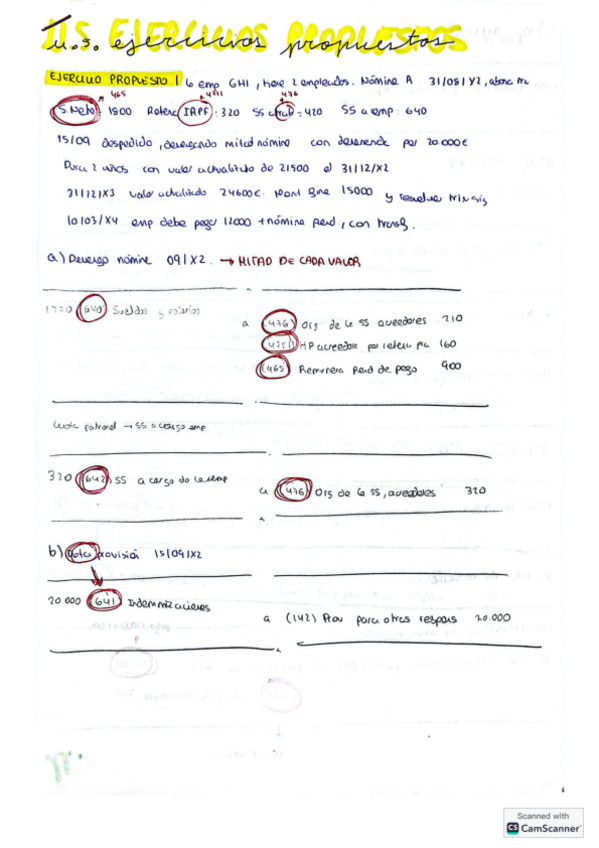 II.5 EJERCICIOS PROPUESTOS
u.3. ejercicios propuestos
EJERCICIO PROPUESTO 1 la emp GHI, tiene 2 empleados. Nómina A 31/08/X2, abona
465 4751 476
S. Neto: 1800 Retenc IRPF: 320 SS a trab = 420 SS a emp: 640
15/09 despedido, devengando mitad nómina con demanda por 20.000€
Dura 2 años con valor actualizado de 21500 el 31/12/X2
31/12/X3 valor actualizado 24600€. 15000 y
10/03/X4 emp debe pagar 12000 + nómina pend, con transf.
a) Devengo nómina 09/X2. → MITAD DE CADA VALOR
1270 (640) Sueldos y salarios
a (476) Org de la SS acreedores 210
(4751) HP acreedora por retenc 160
(465) Remunera pend de pago 900
Cuota patronal → SS a cargo emp
320 (642) SS a cargo de la emp
a (476) Org de la SS, acreedores 320
b) Dota provisión 15/09/X2
20.000 (641) Indemnizaciones
a (142) Prov para otras respons 20.000
Scanned with
CS CamScanner